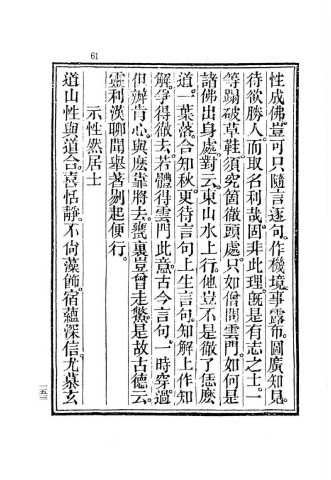 61
性成佛。豈可只隨言逐句。作機境事露布。圖廣知見。
待欲勝人。而取名利哉。固非此理。旣是有志之士。一
等蹋破草鞋。須究箇徹頭處。只如僧問雲門。如何是
諸佛出身處。對云。東山水上行。他豈不是徹了恁麽
道。一葉落。合知秋。更待言句上生言句。知解上作知
解。爭得徹去。若體得雲門此意。古今言句。一時穿過。
但辦肯心。與麽靠將去。甕裏豈曾走鱉。是故古德云。
靈利漢聊聞舉著。剔起便行。
示性然居士
道山性與道合。喜恬靜。不尚藻飾。宿蘊深信。尤慕玄
一五三